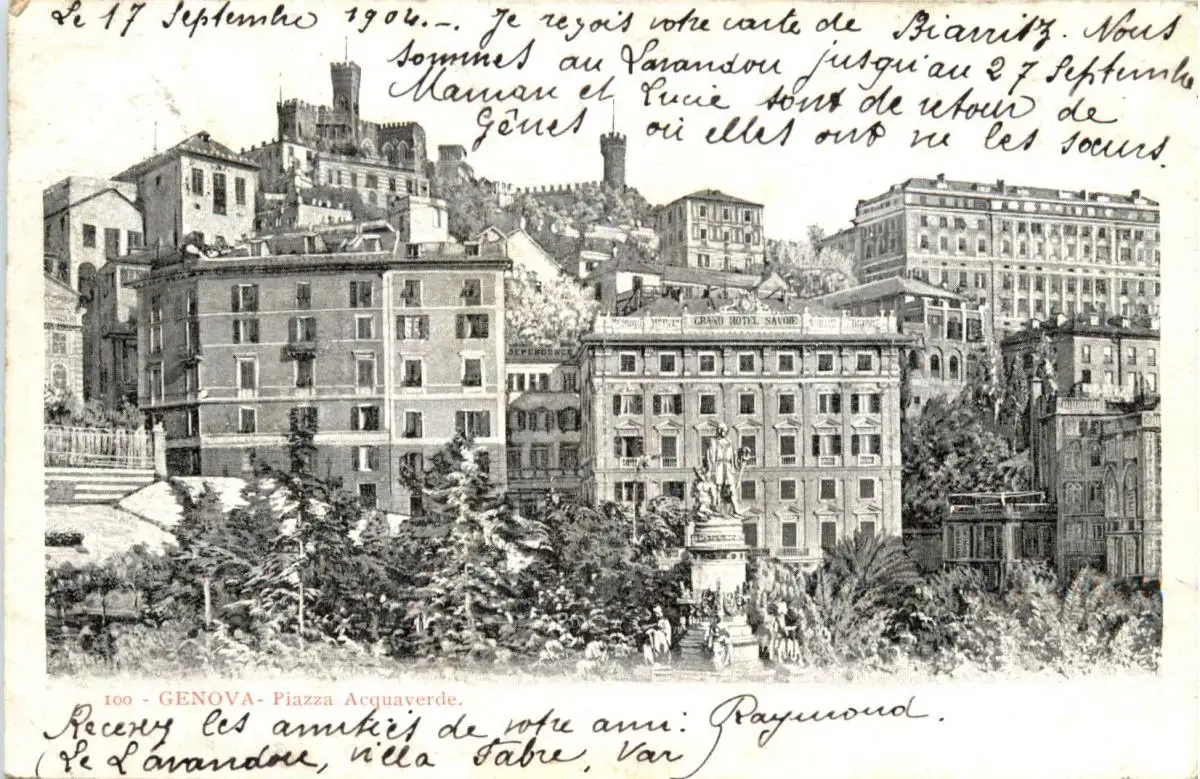 Le 17 Septembre 1904.-. Je reçois votre carte de Biarritz. Nous
sommes au Lavandou jusqu'au 27 Septembre
Maman et Lucie sont de retour de
Gênes où elles ont vu les sœurs.
DEPENDENCE
GRAND HOTEL SAVOIE
100 - GENOVA - Piazza Acquaverde.
Recevez les amitiés de votre ami: Raymond.
(Le Lavandou, villa Fabre, Var)